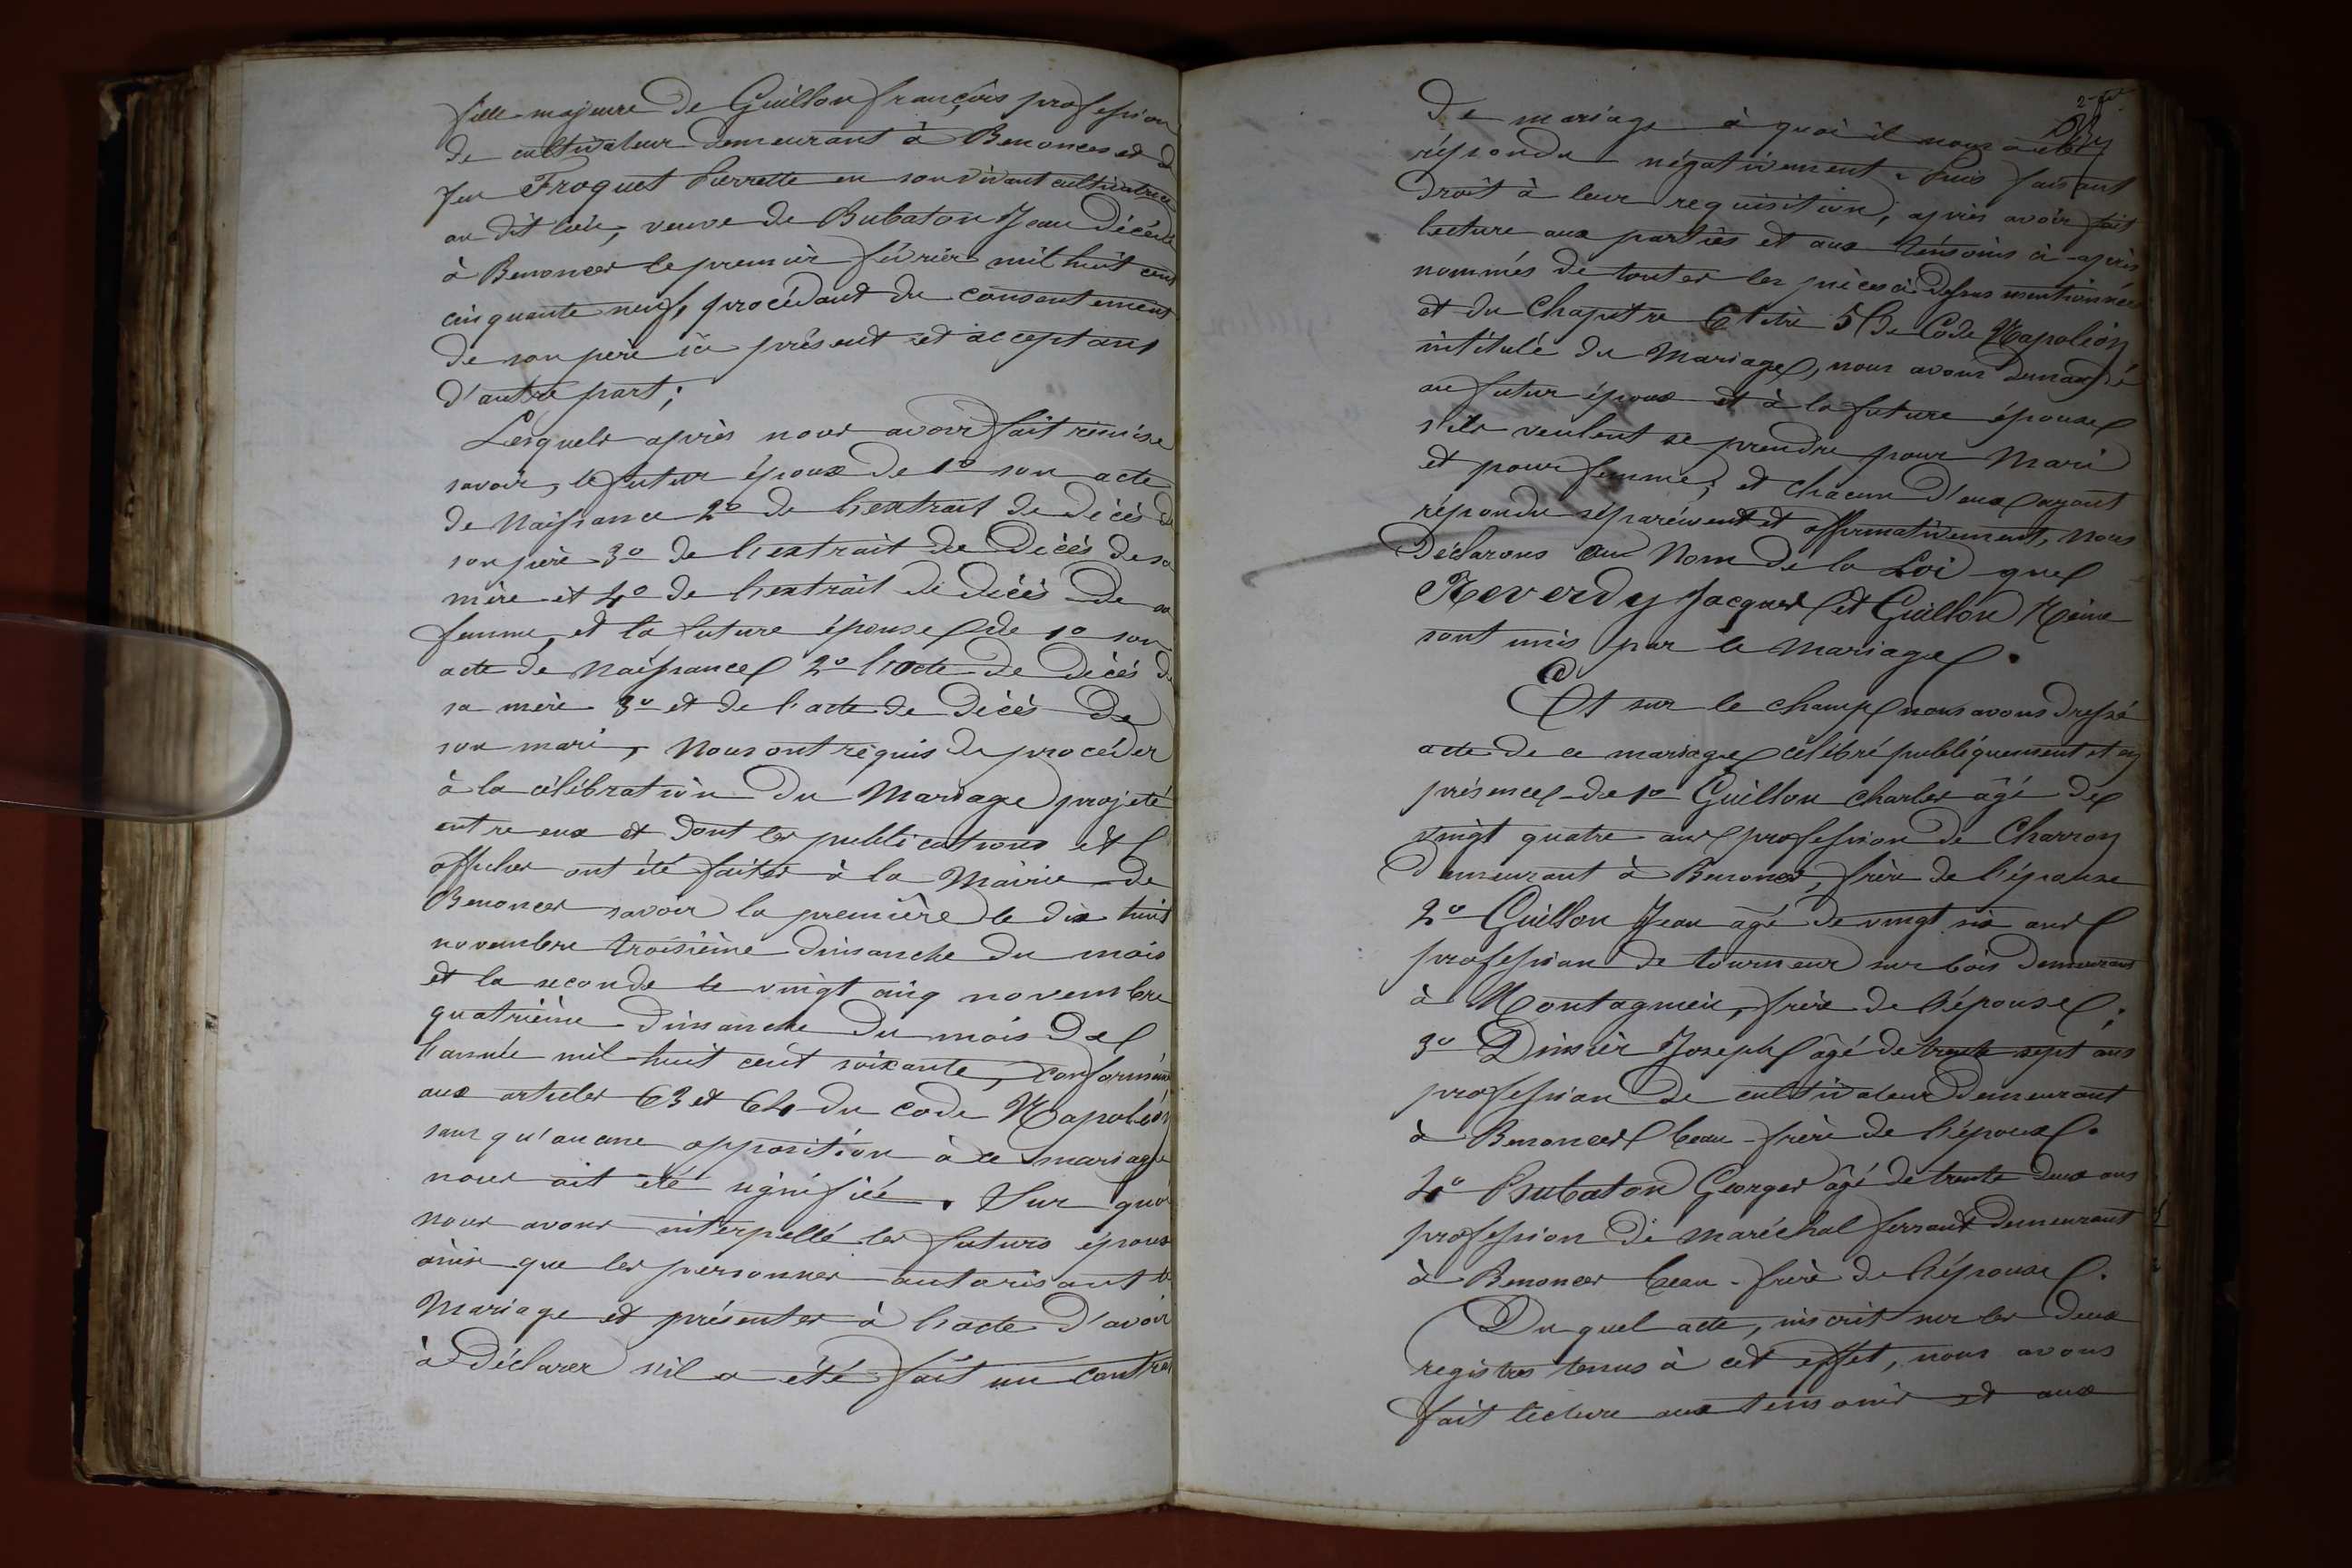 fille majeure de Guillon françois profession
de cultivateur demeurant à Benonces et de
feu Froquet Pierrette en son vivant cultivatrice
au dit lieu, veuve de Bubaton Jean décédé
à Benonces le premier février mil huit cent
cinquante neuf, procédant du consentement
de son père ici présent et acceptant
d'autre part;
Lesquels après nous avoir fait remise
savoir, le futur époux de 1º son acte
de Naissance 2º de l'extrait de décès de
son père 3º de l'extrait de décès de sa
mère et 4º de l'extrait de décès de sa
femme, et la future épouse de 1º son
acte de Naissance 2º l'acte de décès de
sa mère 3º et de l'acte de décès de
son mari, Nous ont requis de procéder
à la célébration du Mariage projeté
entre eux et dont les publications et
affiches ont été faites à la Mairie de
Benonces savoir la première le dix huit
novembre troisième dimanche du mois
et la seconde le vingt cinq novembre
quatrième dimanche du mois de
l'année mil huit cent soixante, conformément
aux articles 63 et 64 du code Napoléon
sans qu'aucune opposition à ce mariage
nous ait été signifiée. Sur quoi
nous avons interpellé les futurs époux
ainsi que les personnes autorisant le
Mariage et présentes à l'acte d'avoir
à déclarer s'il a été fait un contrat
de mariage à quoi il nous a été
répondu négativement. Puis faisant
droit à leur requisition, après avoir fait
lecture aux parties et aux témoins ci-après
nommés de toutes les pièces ci dessus mentionnées
et du Chapitre 6 titre 5 de Code Napoléon
intitulé du Mariage, nous avons demandé
au futur époux et à la future épouse
s'ils veulent se prendre pour Mari
et pour femme; et chacun d'eux ayant
répondu séparément et affirmativement, nous
Déclarons au Nom de la Loi que
Reverdy Jacques et Guillon Reine
sont unis par le Mariage.
Et sur le champ nous avons dressé
acte de ce mariage célébré publiquement et en
présence de 1º Guillon charles âgé de
vingt quatre ans profession de Charron
demeurant à Benonces, frère de l'épouse
2º Guillon Jean âgé de vingt six ans
profession de tourneur sur bois demeurant
à Montagnieu, frère de l'épouse;
3º Dinsier Joseph âgé de trente sept ans
profession de cultivateur demeurant
à Benonces beau-frère de l'époux.
4º Bubaton Georges âgé de trente deux ans
profession de maréchal ferrant demeurant
à Benonces beau-frère de l'épouse.
Du quel acte, inscrit sur les deux
registres tenus à cet effet, nous avons
fait lecture aux témoins et aux